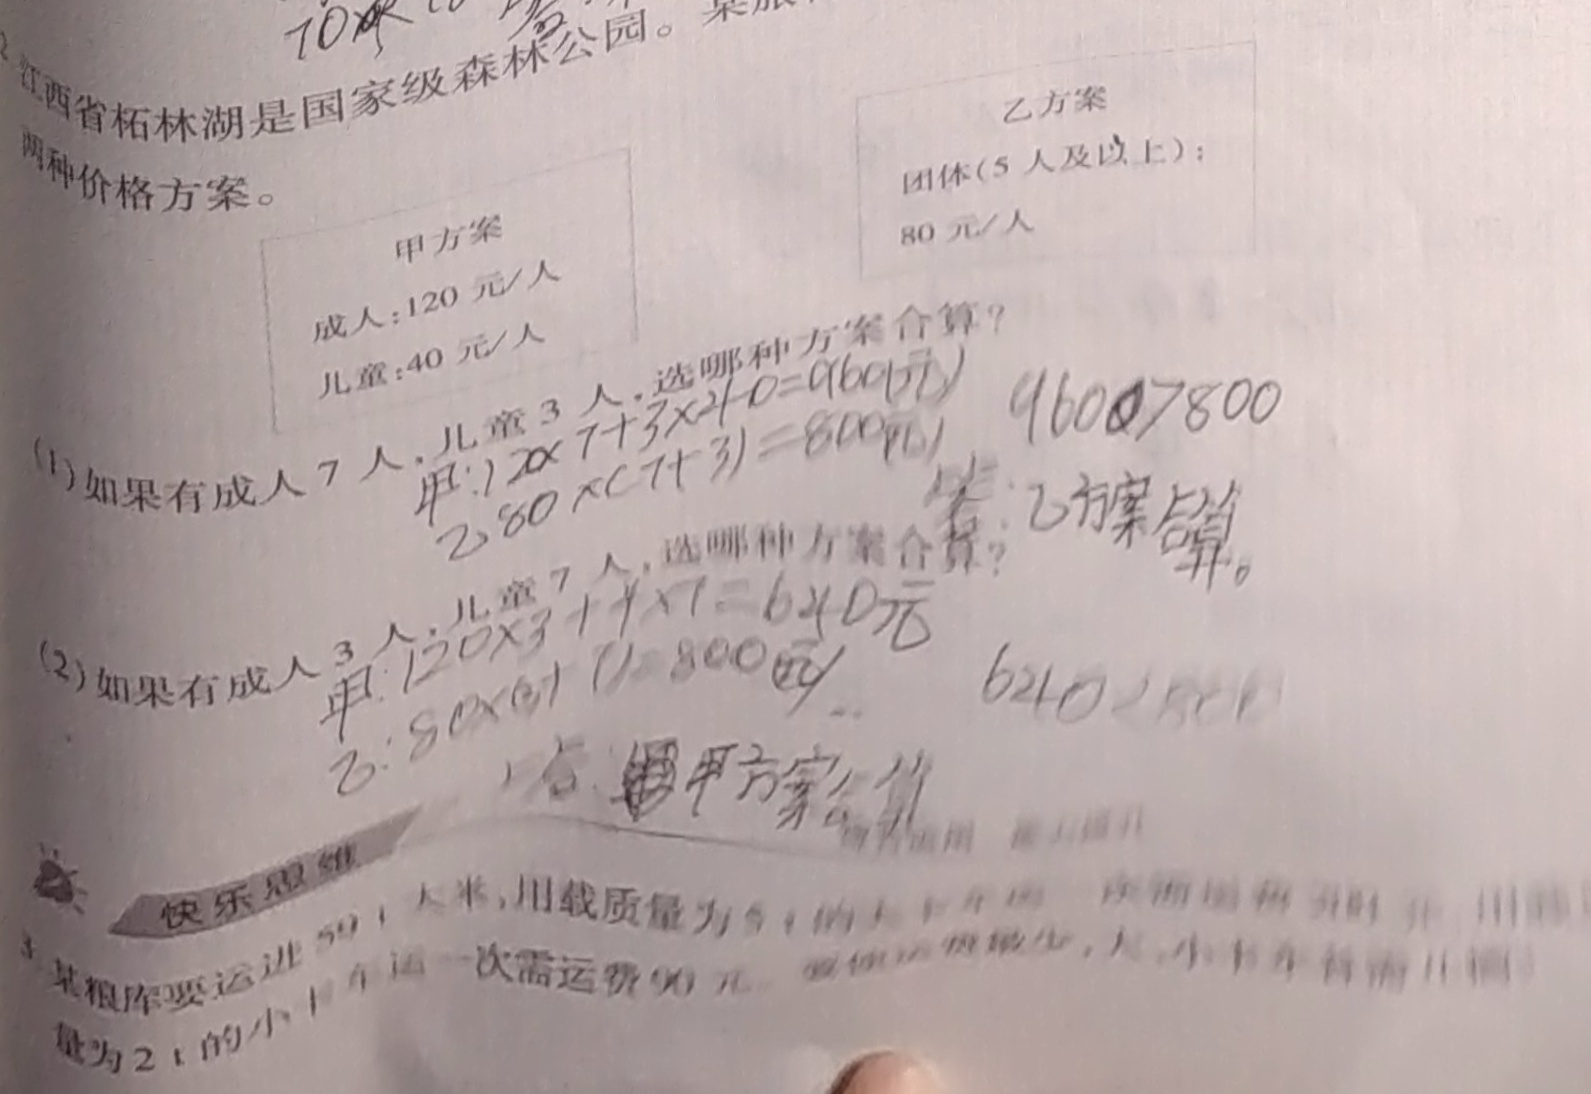 江西省柘林湖是国家级森林公园。某旅
两种价格方案。
甲方案
成人:120 元/人
儿童:40 元/人
乙方案
团体(5 人及以上):
80 元/人
(1)如果有成人 7 人,儿童 3 人,选哪种方案合算?
甲:120×7+3×40=960(元)
乙80×(7+3)=800(元)
960>800
答:乙方案合算。
(2)如果有成人 3 人,儿童 7 人,选哪种方案合算?
甲:120×3+4×7=640元
乙:80×(3+7)=800(元)
640<800
甲方案合算
快乐思维
某粮库要运进 59 t 大米,用载质量为 5 t 的大卡车运一次需运费
量为 2 t 的小卡车运一次需运费 90 元。要使运费最少,大、小卡车各需几辆?